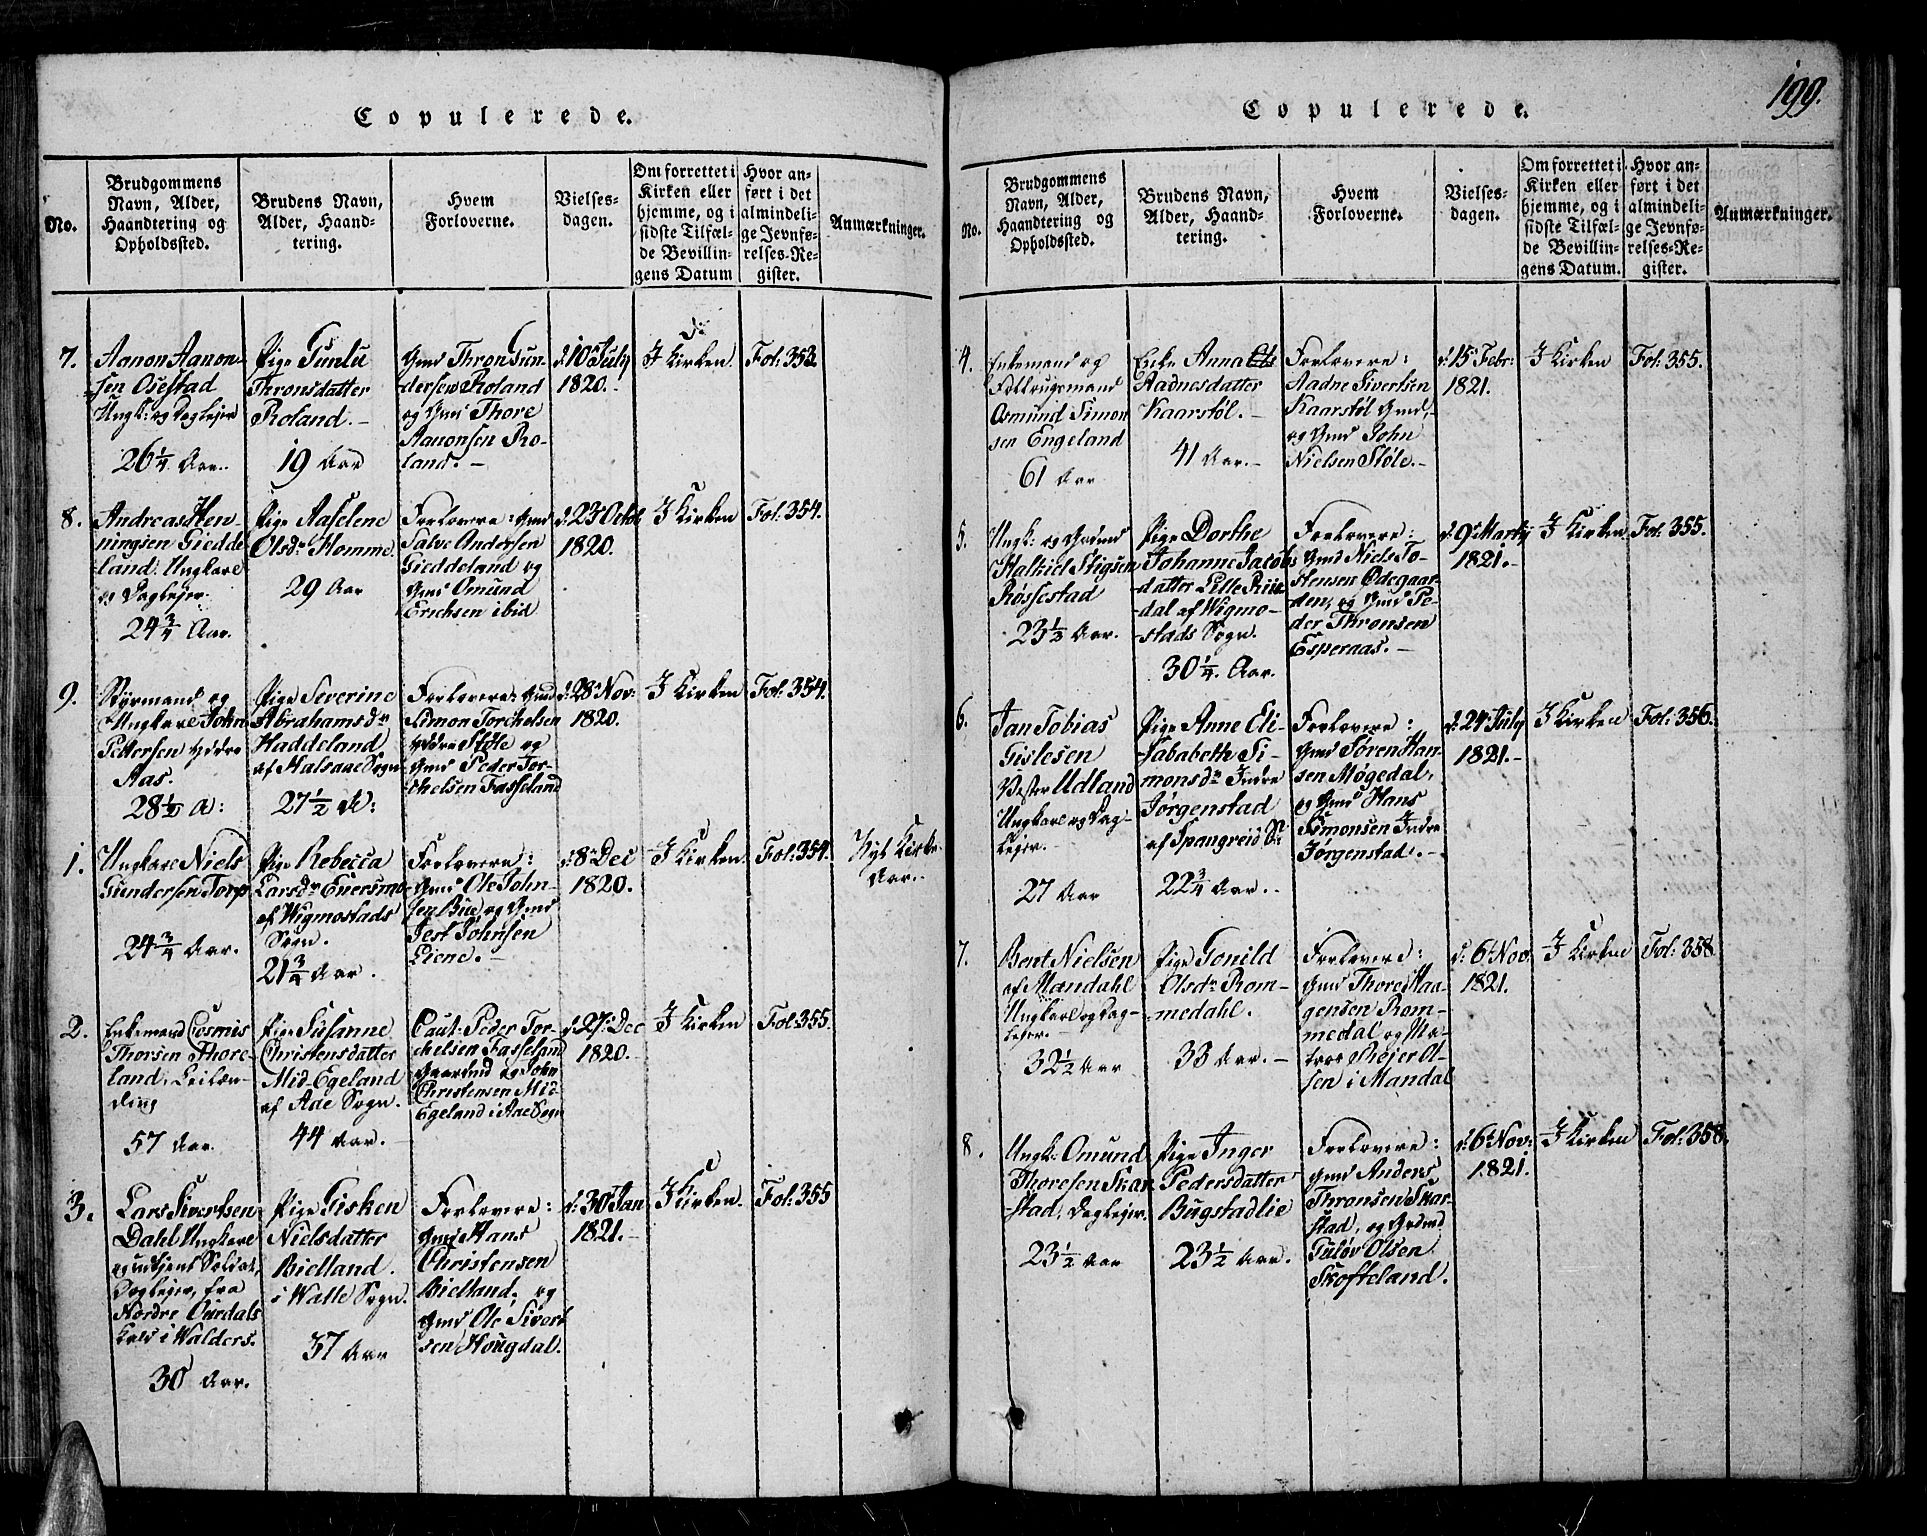 Copulerede.
No.
Brudgommens
Navn, Alder,
Haandtering og
Opholdssted.
Brudens Navn,
Alder, Haand-
tering.
Hvem
Forloverne.
Vielses-
dagen.
Om forrettet i
Kirken eller
hjemme, og i
sidste Tilfæl-
de Bevillin-
gens Datum
Hvor an-
ført i det
almindeli-
ge Jevnfø-
relses-Re-
gister.
Anmærkninger.
7.
Aanon Aanon-
sen Osestad
Ungk: og Dagleier
26¼ Aar.
Pige Gunlu
Thronsdatter
Roland.-
19 Aar
Gmd Thron Gun-
dersen Roland
og Gmd Thore
Aanonsen Ro-
land.-
d: 10de July
1820.
J Kirken
Fol: 353.
8.
Andreas Hen-
ningsen Giedde-
land. Ungkarl
og Dagleier.
24¾ Aar.
Pige Aaselene
Olsdr Homme
29 Aar
Forlovere: Gmd
Salve Andersen
Gieddeland og
Gmd Omund
Erichsen ibid
d. 23 Octb
1820.
J Kirken
Fol: 354.
9.
Styrmand og
Ungkarl John
Pettersen Yddre
Aas.
28½ A:
Pige Severine
Abrahamsdr
Haddeland
af Halsaae Sogn
27½ A:
Forlovere: Gmd
Simon Torchelsen
Yddre Støle og
Gmd Peder Tor-
chelsen Fasseland
d: 28 Nov:
1820.
J Kirken
Fol: 354.
1.
Ungkarl Niels
Gundersen Torp
24¾ Aar.
Pige Rebecca
Larsdr Euersmo
af Wigmostads
Sogn.
21¾ Aar.
Forlovere:
Gmd Ole John-
sen Bue og Gmd
Jest Johnsen
Liene.-
d: 8de Dec
1820.
J Kirken.
Fol: 354.
Nyt Kirke-
Aar.
2.
Enkemand Cosmus
Thorsen Thore-
land, Leilæn-
ding
57 Aar.
Pige Susanne
Christensdatter
Mid-Egeland
af Aae Sogn.
44 Aar.
Caut: Peder Tor-
chelsen Fasseland
Gaardmd og John
Christensen Mid-
Egeland i Aae Sogn
d. 27: Dec
1820.
J Kirken
Fol: 355.
3.
Lars Sivertsen
Dahl Ungkarl
og udtjent Soldat,
Dagleier, fra
Nordre Ourdals
i Walders.
30 Aar.
Pige Gisken
Nielsdatter
Bielland.
i Walle Sogn.
37 Aar
Forlovere:
Gmd Hans
Christensen
Bielland. og
Gmd Ole Sivert
sen Hougdal.
d. 30te Jan
1821.
J Kirken.
Fol: 355
Copulerede.
199.
No.
Brudgommens
Navn, Alder,
Haandtering og
Opholdssted.
Brudens Navn,
Alder, Haand-
tering.
Hvem
Forloverne.
Vielses-
dagen.
Om forrettet i
Kirken eller
hjemme, og i
sidste Tilfæl-
de Bevillin-
gens Datum.
Hvor an-
ført i det
almindeli-
ge Jevnfø-
relses-Re-
gister.
Anmærkninger.
4.
Enkemand og
Osmund Simon
sen Engeland
61 Aar
Enke Anna
Aadnesdatter
Kaarstøl.-
41 Aar.-
Forlovere:
Aadne Sivertsen
Kaarstøl Gmd,
og Gmd John
Nielsen Støle.-
d: 15 Febr:
1821.
J Kirken
Fol: 355.
5.
Ungk: og Gaardmd
Halkiel Stigsen
Røssestad
23½ Aar.
Pige Dorthe
Johanne Jacobs
datter Lille Riise
dal af Wigmo-
stads Sogn.
30¼ Aar.
Forlovere:
Gmd Niels To-
stensen Ødegaar-
den, og Gmd Pe-
der Thronsen
Esperaas.-
d. 9de Martij
1821.-
J Kirken
Fol: 355.
6.
Jan Tobias
Gislesen
Vester Udland
Ungkarl og Dag-
leier.-
27 Aar
Pige Anne Eli-
sababeth Si-
monsdr Indre
Jørgenstad
af Spangreid Sn
22¾ Aar.
Forlovere:
Gmd Søren Han-
sen Møgedal,
og Gmd Hans
Simonsen Indre
Jørgenstad.-
d. 24de July
1821.-
J Kirken
Fol: 356.
7.
Bent Nielsen
af Mandahl
Ungkarl og Dag-
leier.
32½ Aar
Pige Gonild
Olsdr Rom-
medahl.
33 Aar.-
Forlovere:
Gmd Thore Aa-
gensen Rom-
medal og Ma-
tros Reier Ol-
sen i Mandal
d. 6te Nov.
1821.
J Kirken
Fol: 358
8.
Ungk: Omund
Thoresen Skar-
stad, Dagleier.
23½ Aar
Pige Inger
Pedersdatter
Bugstadlie
23½ Aar.
Forlovere:
Gmd Anders
Thronsen Skar-
stad, og Gaardmd
Tuløv Olsen
Skofteland.
d. 6te Nov:
1821.
J Kirken
Fol: 358.